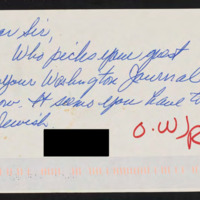 ar Sir,
Who picks your guest
your Washington Journal
ow. It seems you have to
Jewish
O.W/R